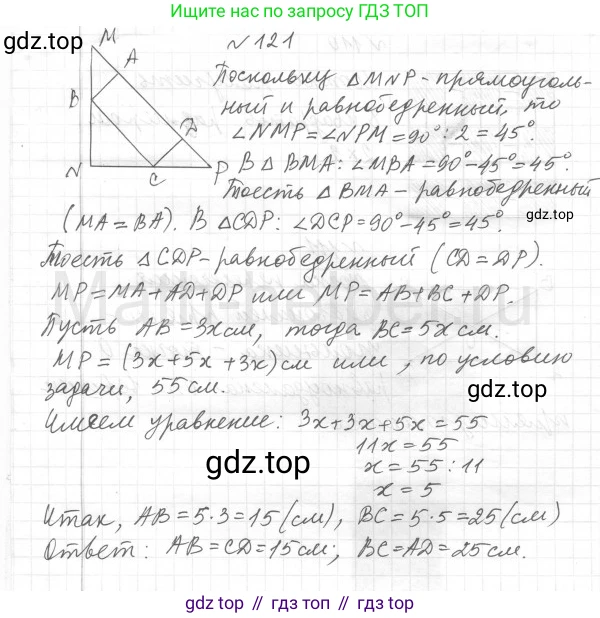 Ищите нас по запросу ГДЗ ТОП
gdz.top
M
№ 121
A
Поскольку △MNP - прямоуголь-
B
ный и равнобедренный, то
D
∠NMP=∠NPM=90°:2=45°.
В △ BMA: ∠MBA=90°-45°=45°.
N
C
P
Тоесть △ BMA - равнобедренный
(MA=BA). В △CDP: ∠DCP=90°-45°=45°.
Тоесть △CDP-равнобедренный (CD=DP).
MP=MA+AD+DP или MP=AB+BC+DP.
Пусть AB=3x см, тогда BC=5x см.
MP=(3x+5x+3x)см или, по условию
задачи, 55 см.
gdz.top
Имеем уравнение: 3x+3x+5x=55
11x=55
gdz.top
x=55:11
x=5
Итак, AB=5·3=15(см), BC=5·5=25(см)
Ответ: AB=CD=15см; BC=AD=25см.
gdz.top // гдз.топ // gdz.top